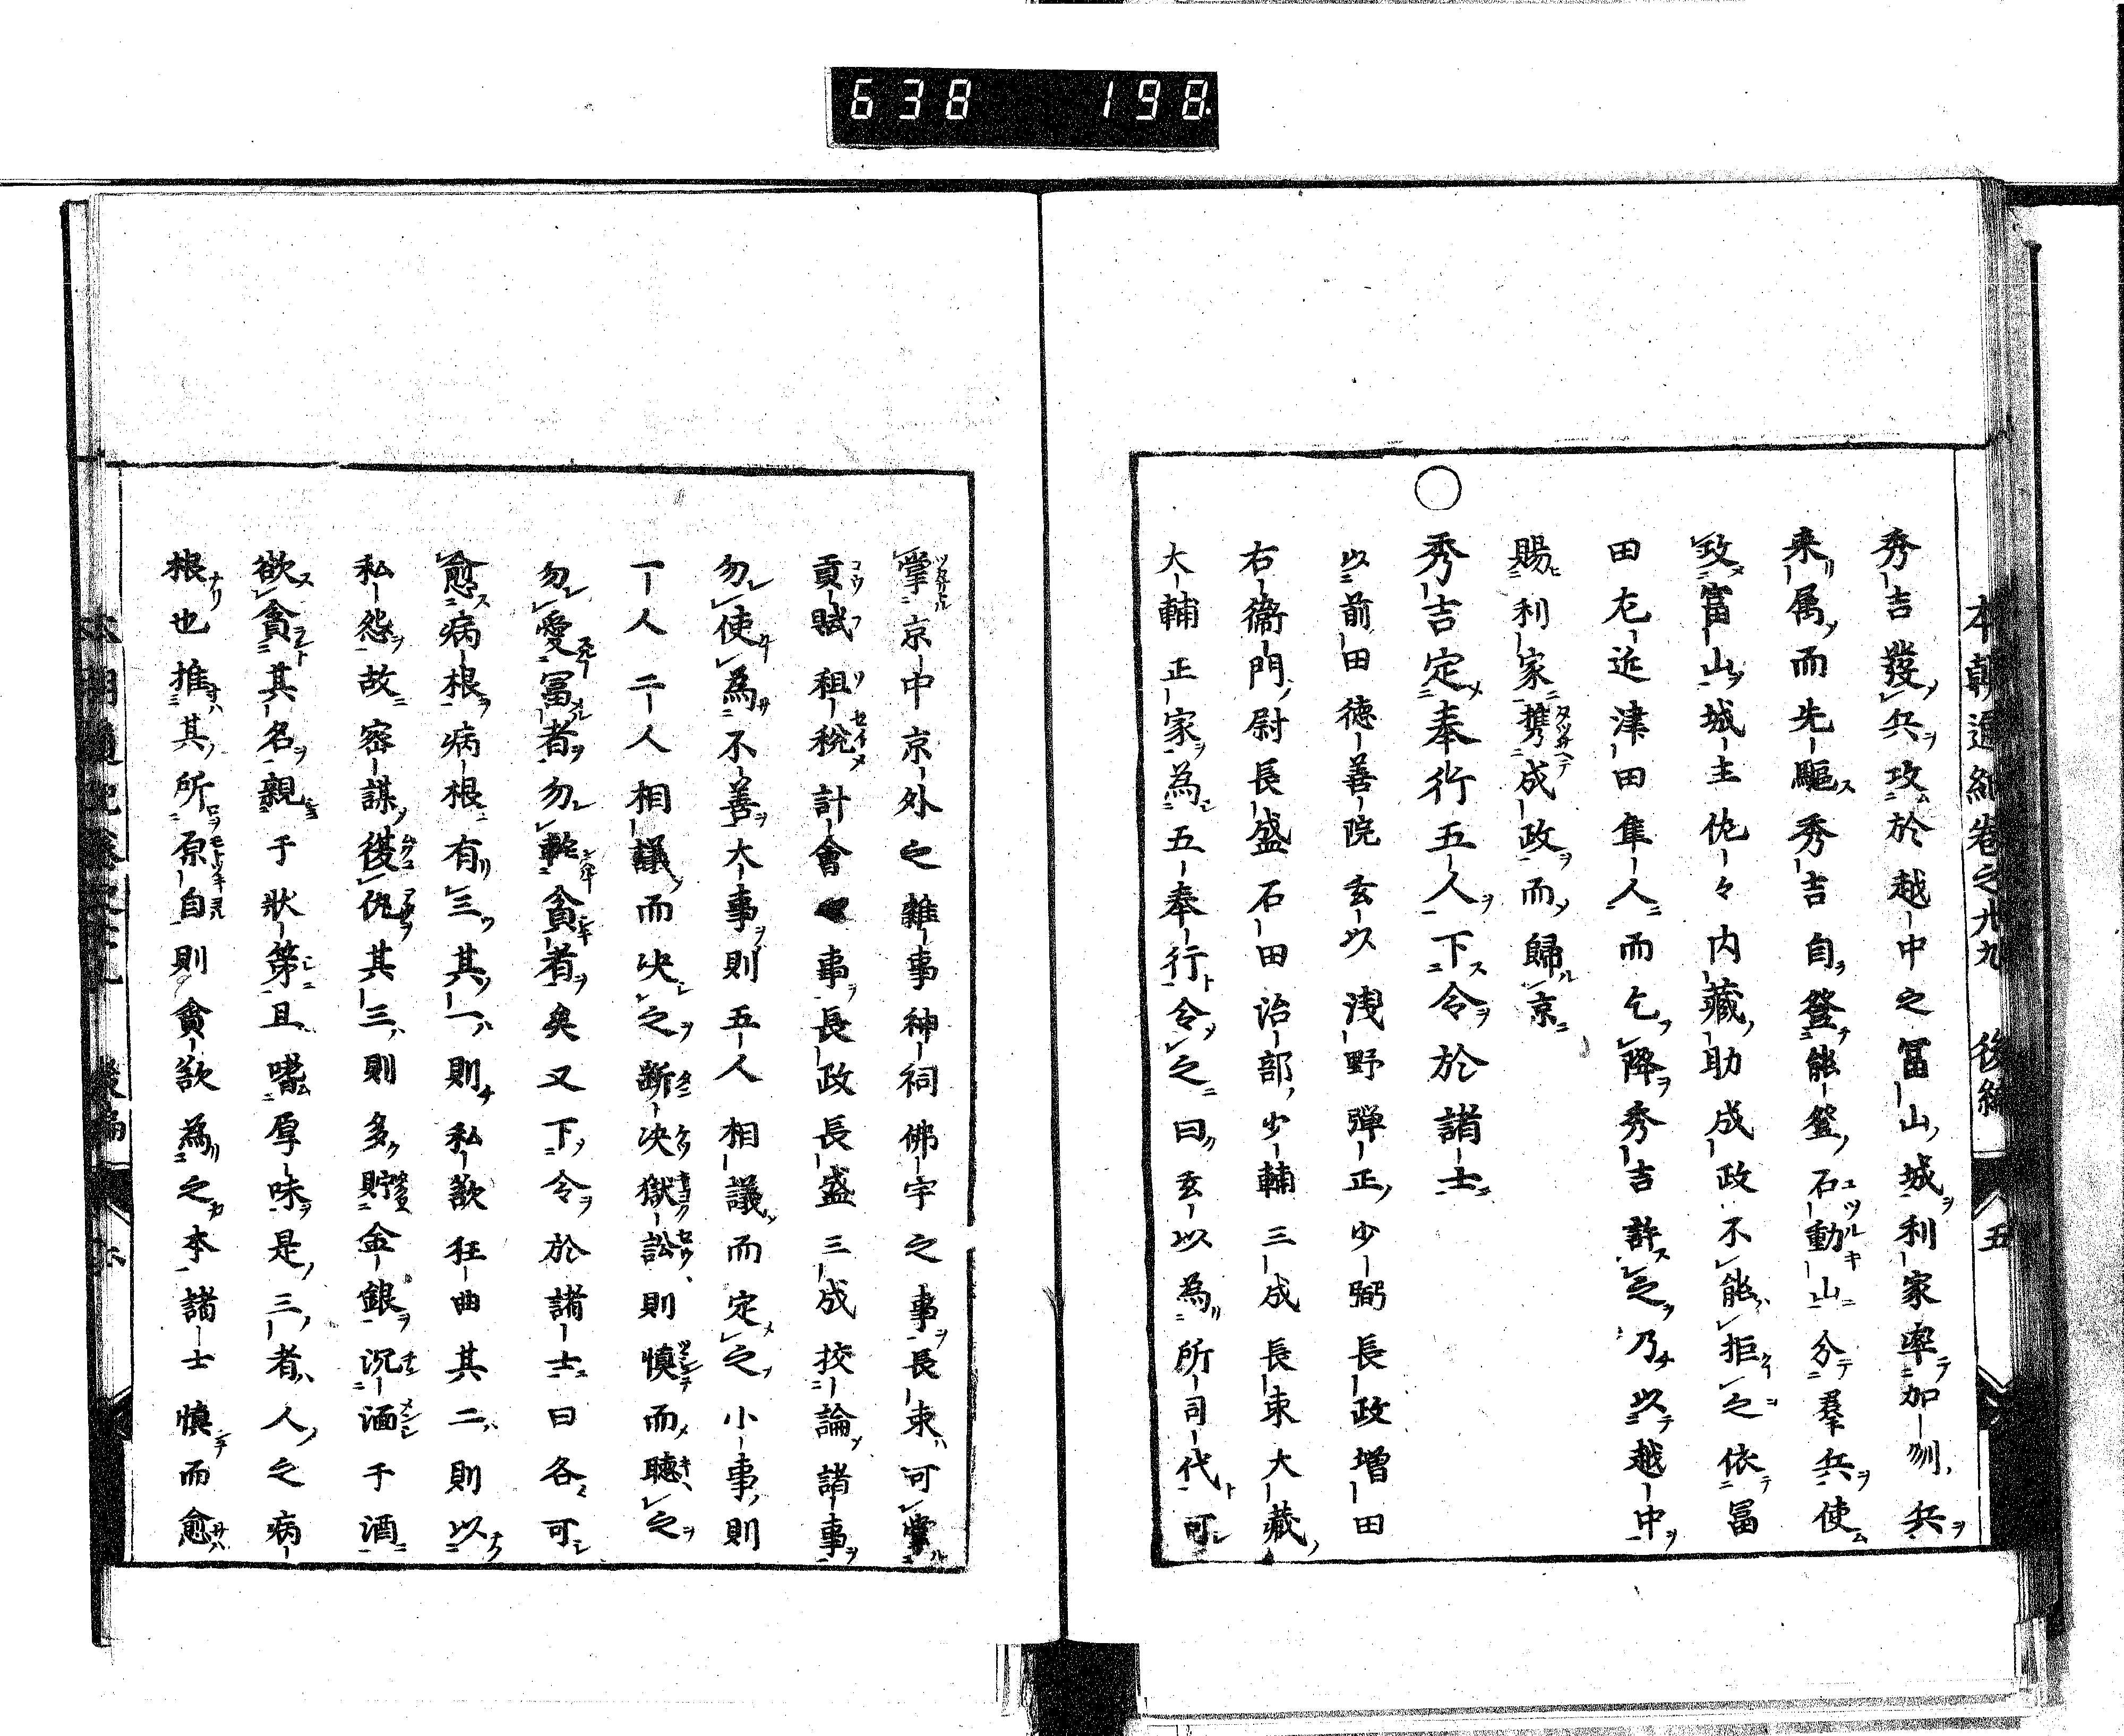 638 198.
本朝通紀卷之廿九 後編 五
秀吉發兵攻於越中之冨山城利家率加刕兵
来属而先驅秀吉自登能登石動山分羣兵使
攻富山城主佐々内藏助成政不能拒之依冨
田左近津田隼人而乞降秀吉許之乃以越中
賜利家携成政而歸京
○秀吉定奉行五人下令於諸士
以前田徳善院玄以浅野弾正少弼長政増田
右衞門尉長盛石田治部少輔三成長束大藏
大輔正家為五奉行令之曰玄以為所司代可
掌京中京外之雜事神祠佛宇之事長束可掌
貢賦租税計會事長政長盛三成挍論諸事
勿使為不善大事則五人相議而定之小事則
一人二人相議而决之断决獄訟則慎而聴之
勿愛冨者勿軽貧者矣又下令於諸士曰各可
愈病根病根有三其一則私欲狂曲其二則以
私怨故密謀復仇其三則多貯金銀沉湎于酒
欲貪其名親于狀第且嗜厚味是三者人之病
根也推其所原自則貪欲為之本諸士慎而愈